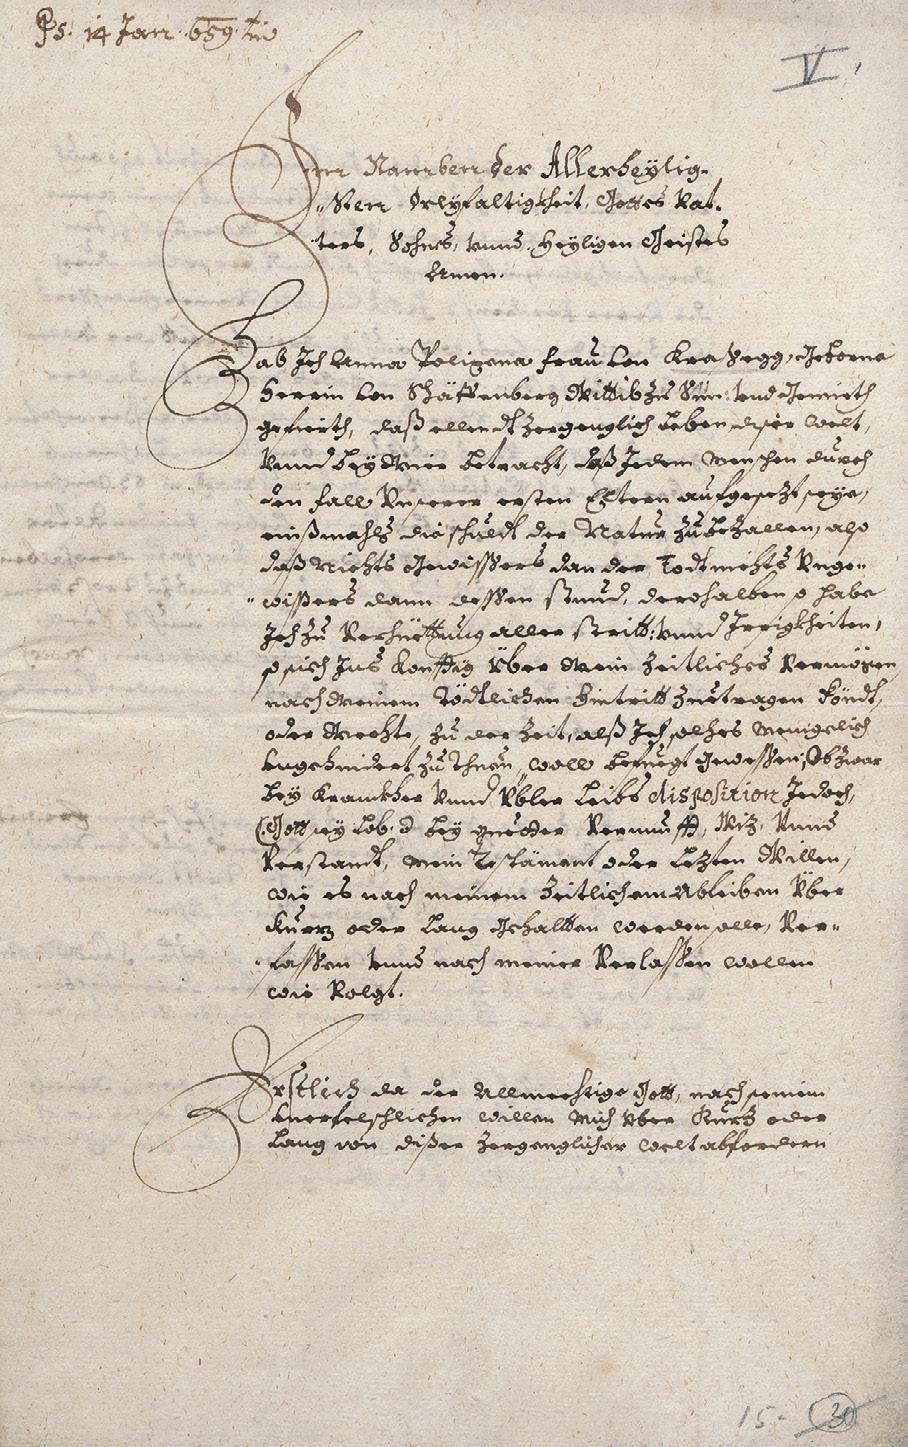 Ps. 14 Jan. 659
V
Im Namben der Allerheylig-
"sten Dryfaltigkheit, Gottes Vat-
ters, Sohnes, vnnd Heyligen Geistes
Amen.
Hab Ich Anna Polixena Frau von Geborne
Herrin von Schäffenberg Wittib zu Sün: vnd Gemieth
gefierth, daß ellendt Zergenglich Leben diser welt,
Vnnd bey Mier betracht, daß Jedem menschen durch
den fall Vnserer ersten Eltern aufgesezt seye,
einßmahls die schuldt der Natur zu bezallen, also
daß nichts Gewissers dan der Todt nichts Vnge-
"wißers dann dessen stund, derohalben so habe
Ich zu Verhüettung aller stritt: vnnd Irrigkheiten,
so sich Ins Konfftig Über Mein Zeitliches Vermögen
nach Meinem Tödtlichen Hintritt zuetragen köndt,
oder Mechte, zu der Zeit, alß Ich solhes menigelich
vngehindert zu Thuen, woll befuegt Gewessen, Ob zwar
bey Krankher Vnnd Vbler Leibs disposition Jedoch,
(:Gott sey Lob:) bey guetter Vernunfft, Wiz, Vnnd
Verstandt, mein Testäment oder Lezten Willen,
wie es nach meinem Zeitlichem Ableiben Über
Kurz oder Lang Gehaltten werden solle, Ver-
"fassen vnnd nach meiner Verlassen wollen
wie Volgt.
Erstlich da der Allmechtige Gott, nach seinem
vnerforschlichen willen Mich Vber Kurz oder
Lang von diser Zergenglicher welt abfordern
15- 30